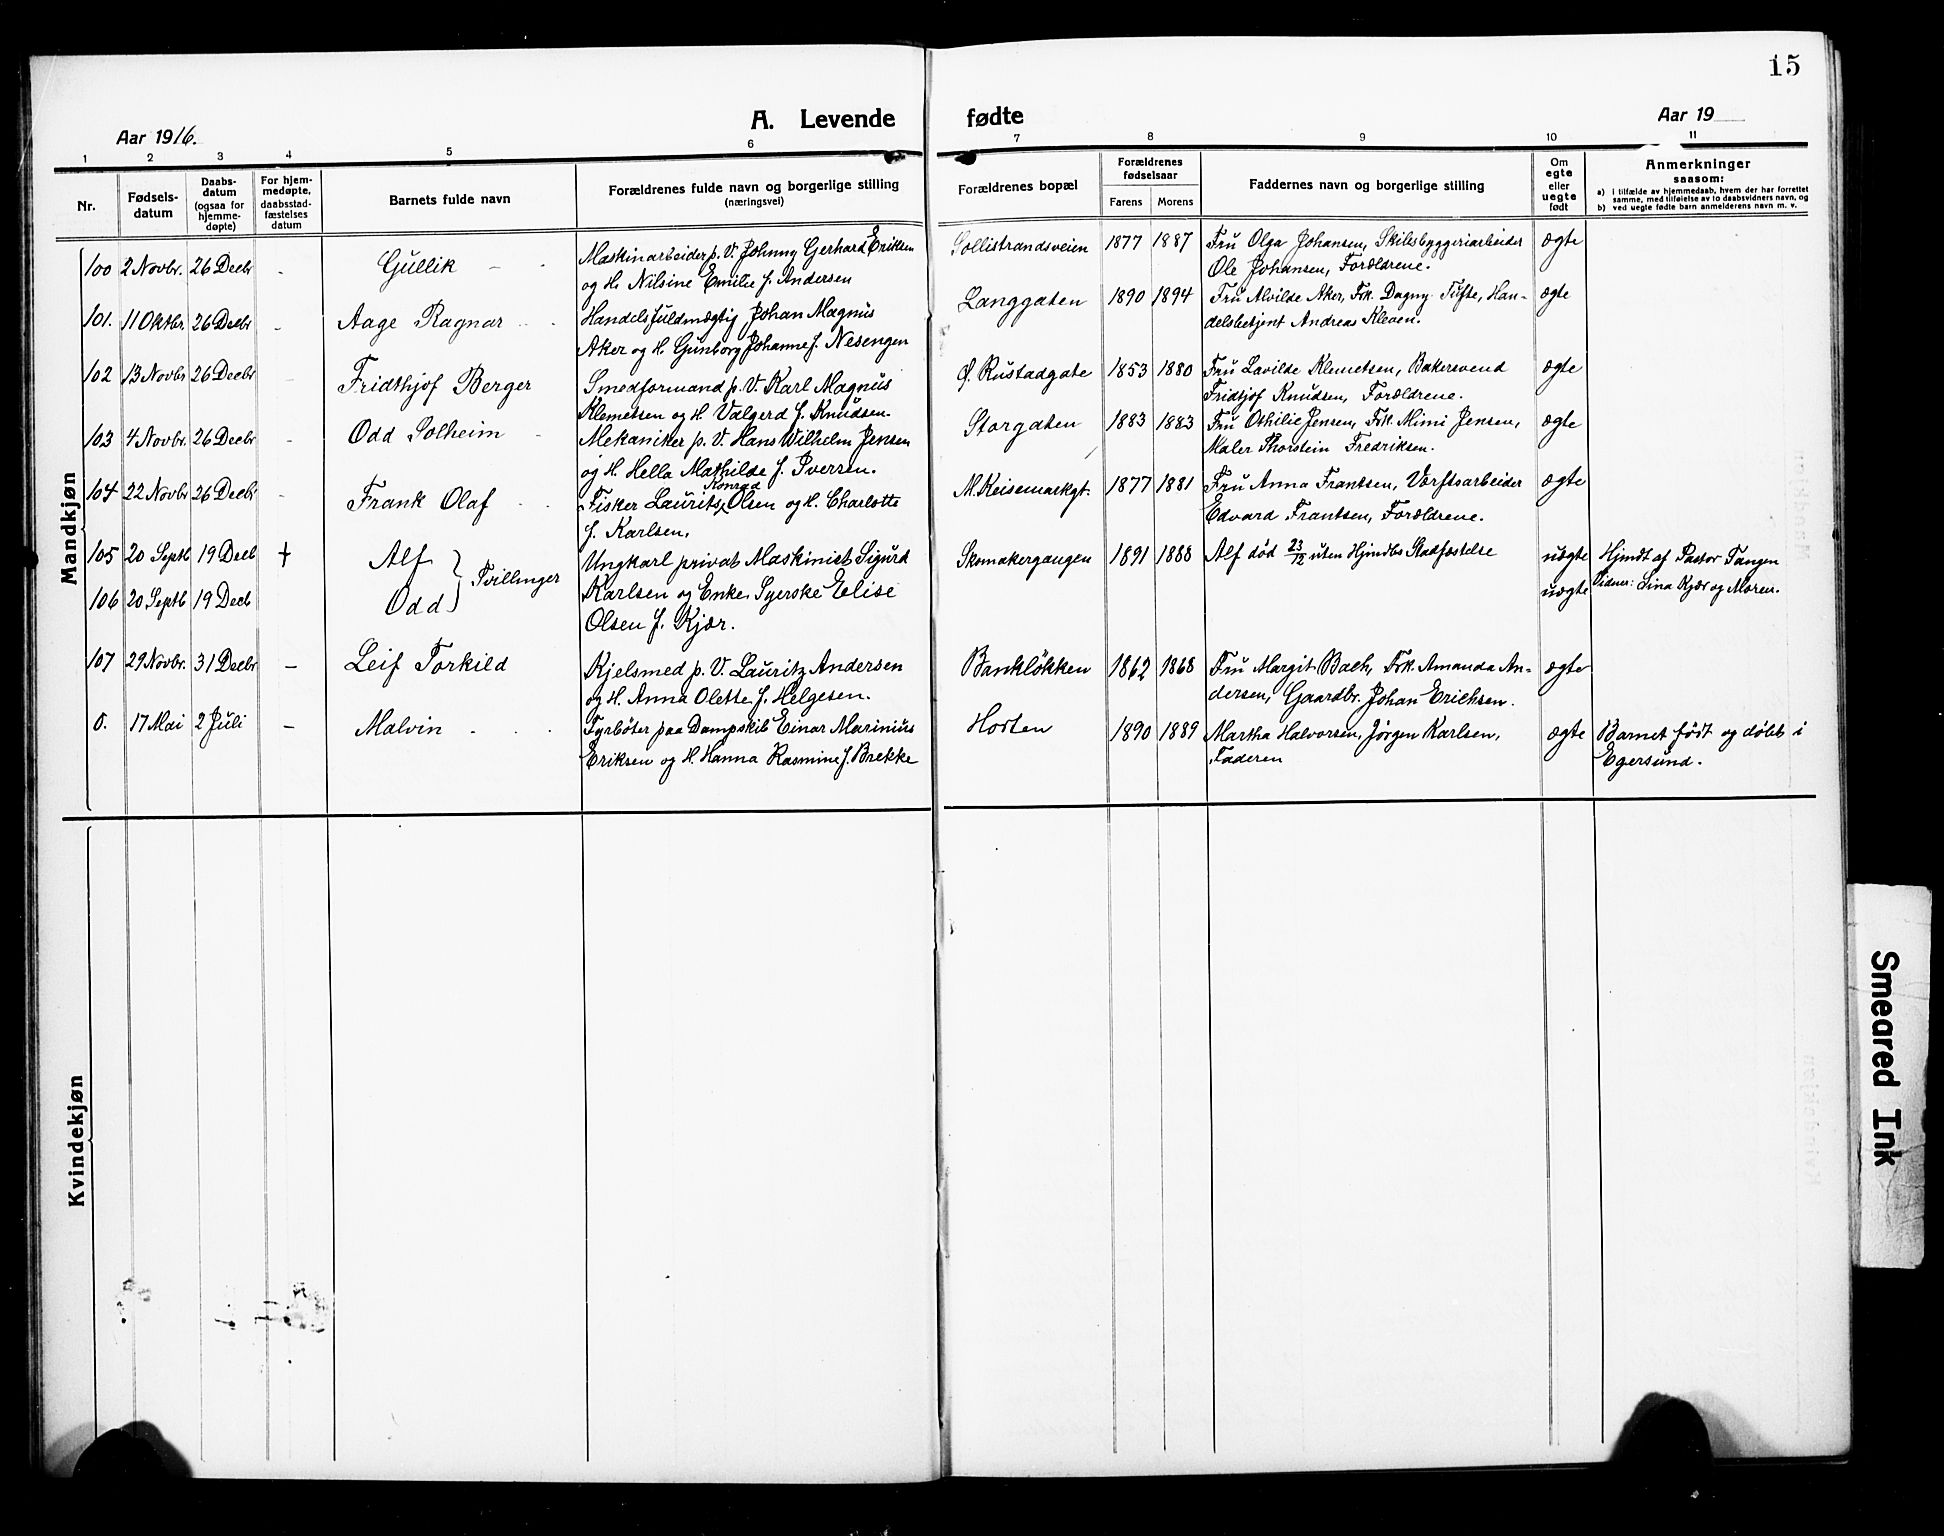 15
Aar 1916.
A. Levende fødte
Aar 19
1 2 3 4 5 6 7 8 9 10 11
Nr.
Fødsels-
datum
Daabs-
datum
(ogsaa for
hjemme-
døpte)
For hjem-
medøpte,
daabsstad-
fæstelses
datum
Barnets fulde navn
Forældrenes fulde navn og borgerlige stilling
(næringsvei)
Forældrenes bopæl
Forældrenes
fødselsaar
Farens Morens
Faddernes navn og borgerlige stilling
Om
egte
eller
uegte
født
Anmerkninger
saasom:
a) i tilfælde av hjemmedaab, hvem der har forrettet
samme, med tilføielse av to daabsvidners navn, og
b) ved uegte fødte barn anmelderens navn m. v.
Mandkjøn
100 2 Novbr. 26 Decbr - Gullik - -
Maskinarbeider p. V. Johnny Gerhard Eriksen
og H. Nilsine Emilie f. Andersen
Sollistrandsveien 1877 1887
Fru Olga Johansen, Skibsbyggeriarbeider
Ole Johansen, Forældrene.
ægte
101. 11 Oktbr. 26 Decbr - Aage Ragnar
Handelsfuldmægtig Johan Magnus
Aker og H. Gunborg Johanne f. Nesengen
Langgaten 1890 1894
Fru Alvilde Aker, Frk. Dagny Tufte, Han-
delsbetjent Andreas Kleven.
ægte
102 13 Novbr 26 Decbr - Fridthjof Berger
Smedformand p. V. Karl Magnus
Klemetsen og H. Valgerd f. Knudsen.
Ø. Rustadgate 1853 1880
Fru Lavilde Klemetsen, Bakersvend
Fridtjof Knudsen, Forældrene.
ægte
103 4 Novbr. 26 Decbr - Odd Solheim -
Mekaniker p. V. Hans Wilhelm Jensen
og H. Hella Mathilde f. Iversen.
Storgaten 1883 1883
Fru Othilie Jensen, Frk. Mimi Jensen,
Maler Thorstein Fredriksen.
ægte
104 22 Novbr 26 Decbr - Frank Olaf - -
Konrad
Fisker Laurits Olsen og H. Charlotte
f. Karlsen.
M. Keisemarkgt. 1877 1881
Fru Anna Frantsen, Værftsarbeider
Edvard Frantsen, Forældrene.
ægte
105 20 Septb 19 Decb + Alf
106 20 Septb 19 Decb Odd
Tvillinger
Ungkarl privat Maskinist Sigurd
Karlsen og Enke, Syerske Elise
Olsen f. Kjær.
Skomakergangen 1891 1888
Alf død 23/12 uten Hjmdbs Stadfæstelse
uægte
uægte
Hjmdt af Pastor Tangen
Vidner: Lina Kjær og Moren.
107 29 Novbr. 31 Decbr - Leif Torkild
Kjelsmed p. V. Lauritz Andersen
og H. Anna Olette f. Helgesen.
Bankløkken 1862 1868
Fru Margit Bach, Frk. Amanda An-
dersen, Gaardbr. Johan Erichsen.
ægte
0. 17 Mai 2 Juli - Malvin - - -
Fyrbøter paa Dampskib Einar Marinius
Eriksen og H. Hanna Rasmine f. Brekke
Horten 1890 1889
Martha Halvorsen, Jørgen Karlsen,
Faderen
ægte
Barnet født og døbt i
Egersund.
Kvindekjøn
Smeared Ink